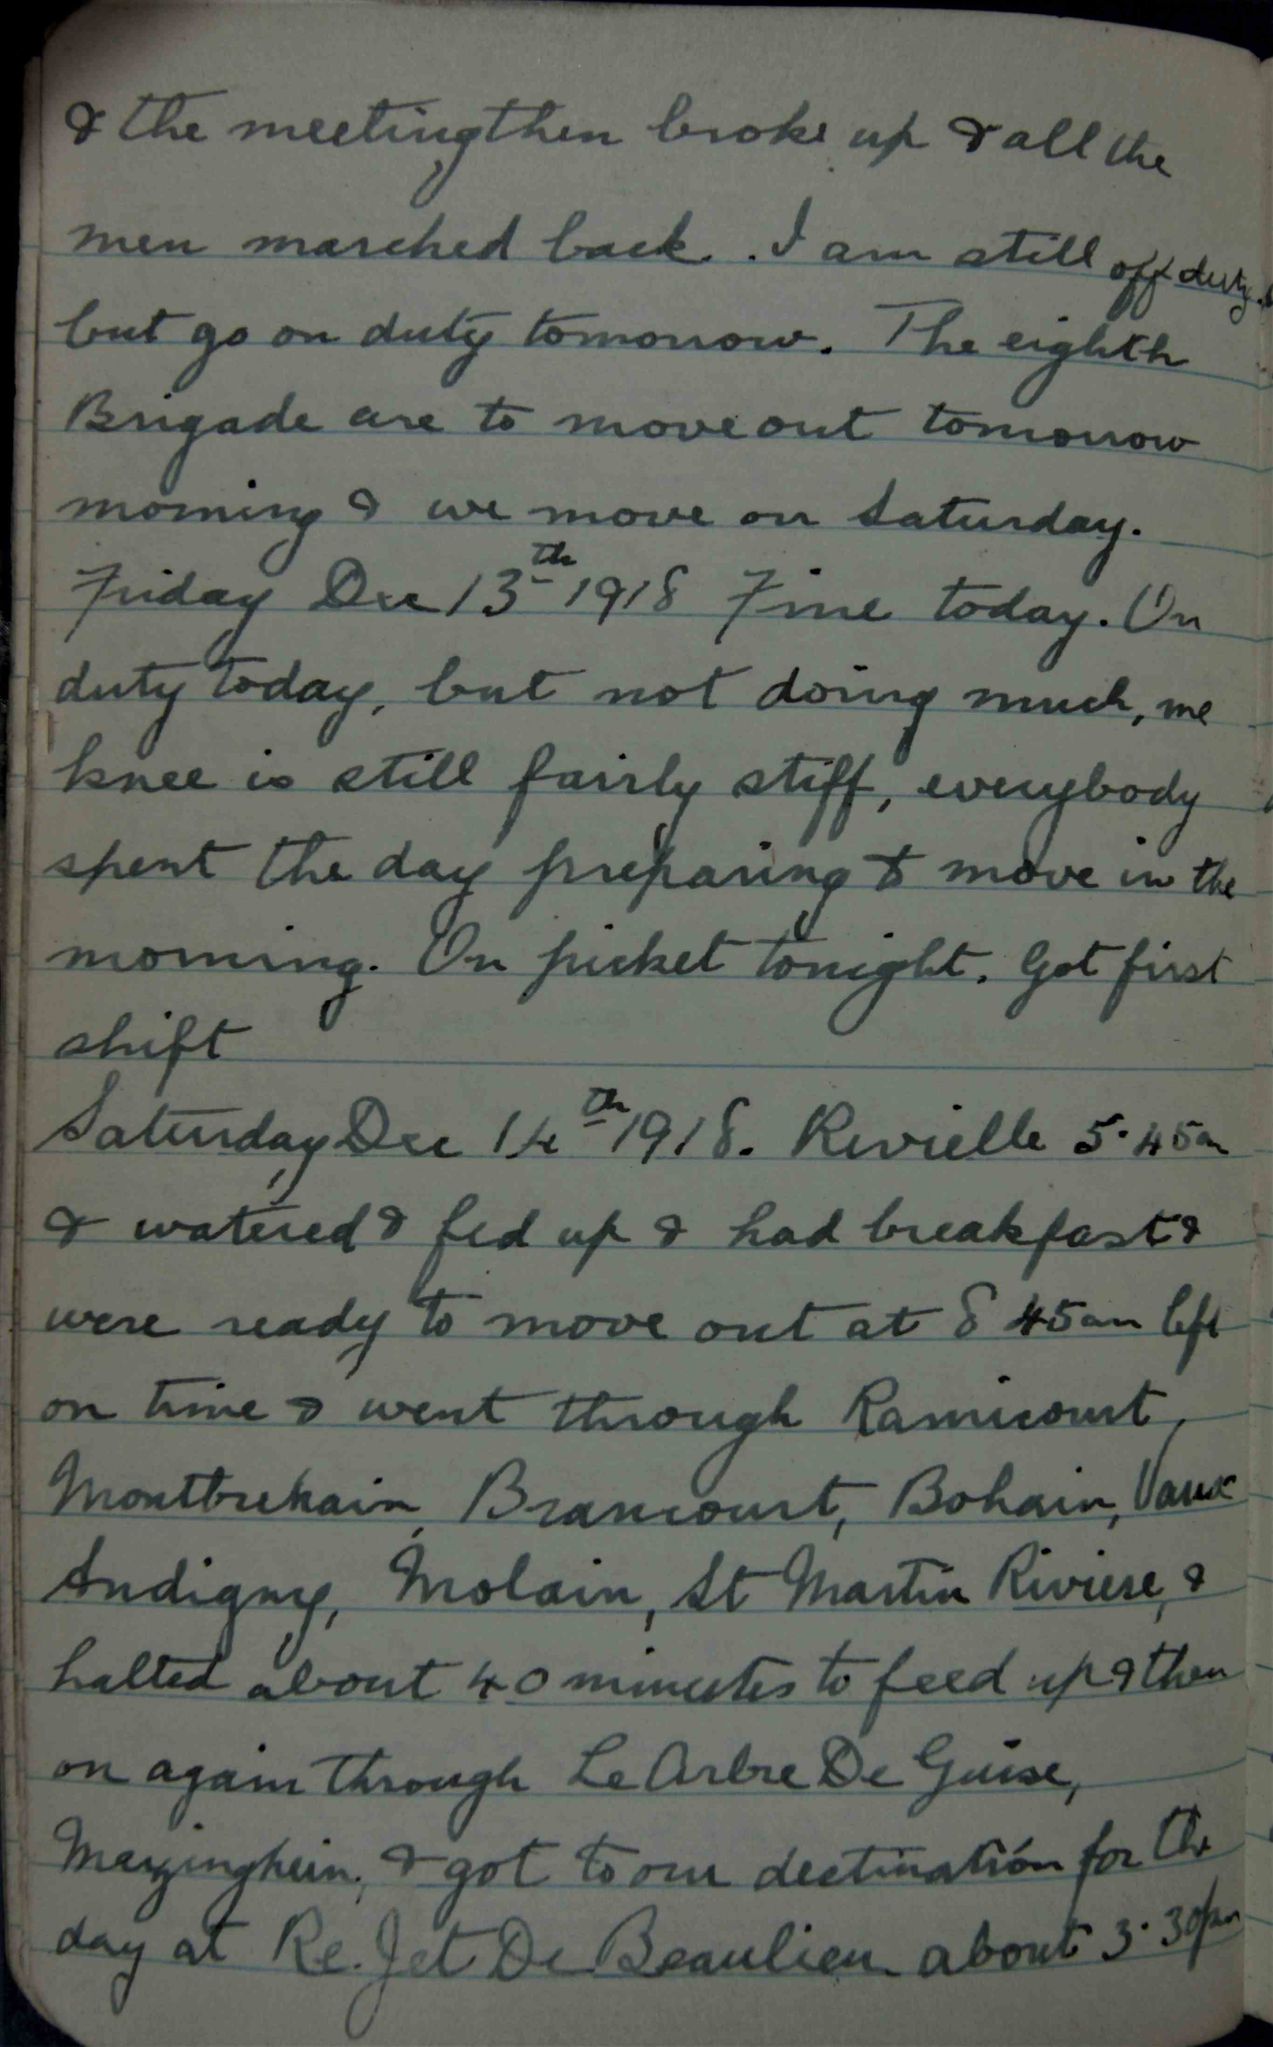 & the meeting then broke up & all the
men marched back. I am still off duty
but go on duty tomorrow. The eighth
Brigade are to move out tomorrow
morning & we move on Saturday.
Friday Dec 13th 1918 Fine today. On
duty today, but not doing much, me
knee is still fairly stiff, everybody
spent the day preparing to move in the
morning. On picket tonight. Got first
shift
Saturday Dec 14th 1918. Revielle 5.45am
& watered & fed up & had breakfast &
were ready to move out at 8 45am left
on time & went through Ramicourt,
Montbrehain, Brancourt, Bohain, Vaux
Andigny, Molain, St Martin Riviere, &
halted about 40 minutes to feed up & then
on again through Le Arbre De Guise,
Mazinghein, & got to our destination for the
day at Re.Jet De Beaulieu about 3.30pm